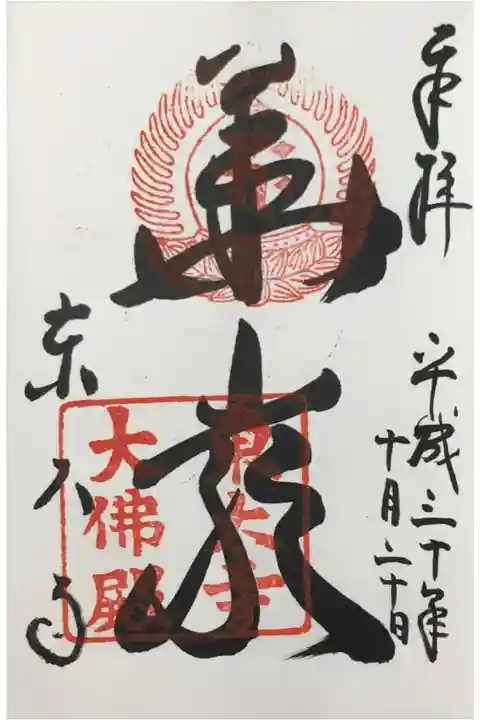 奉拝
平成三十年
十月二十日
華厳
東大寺
東大寺
大佛殿